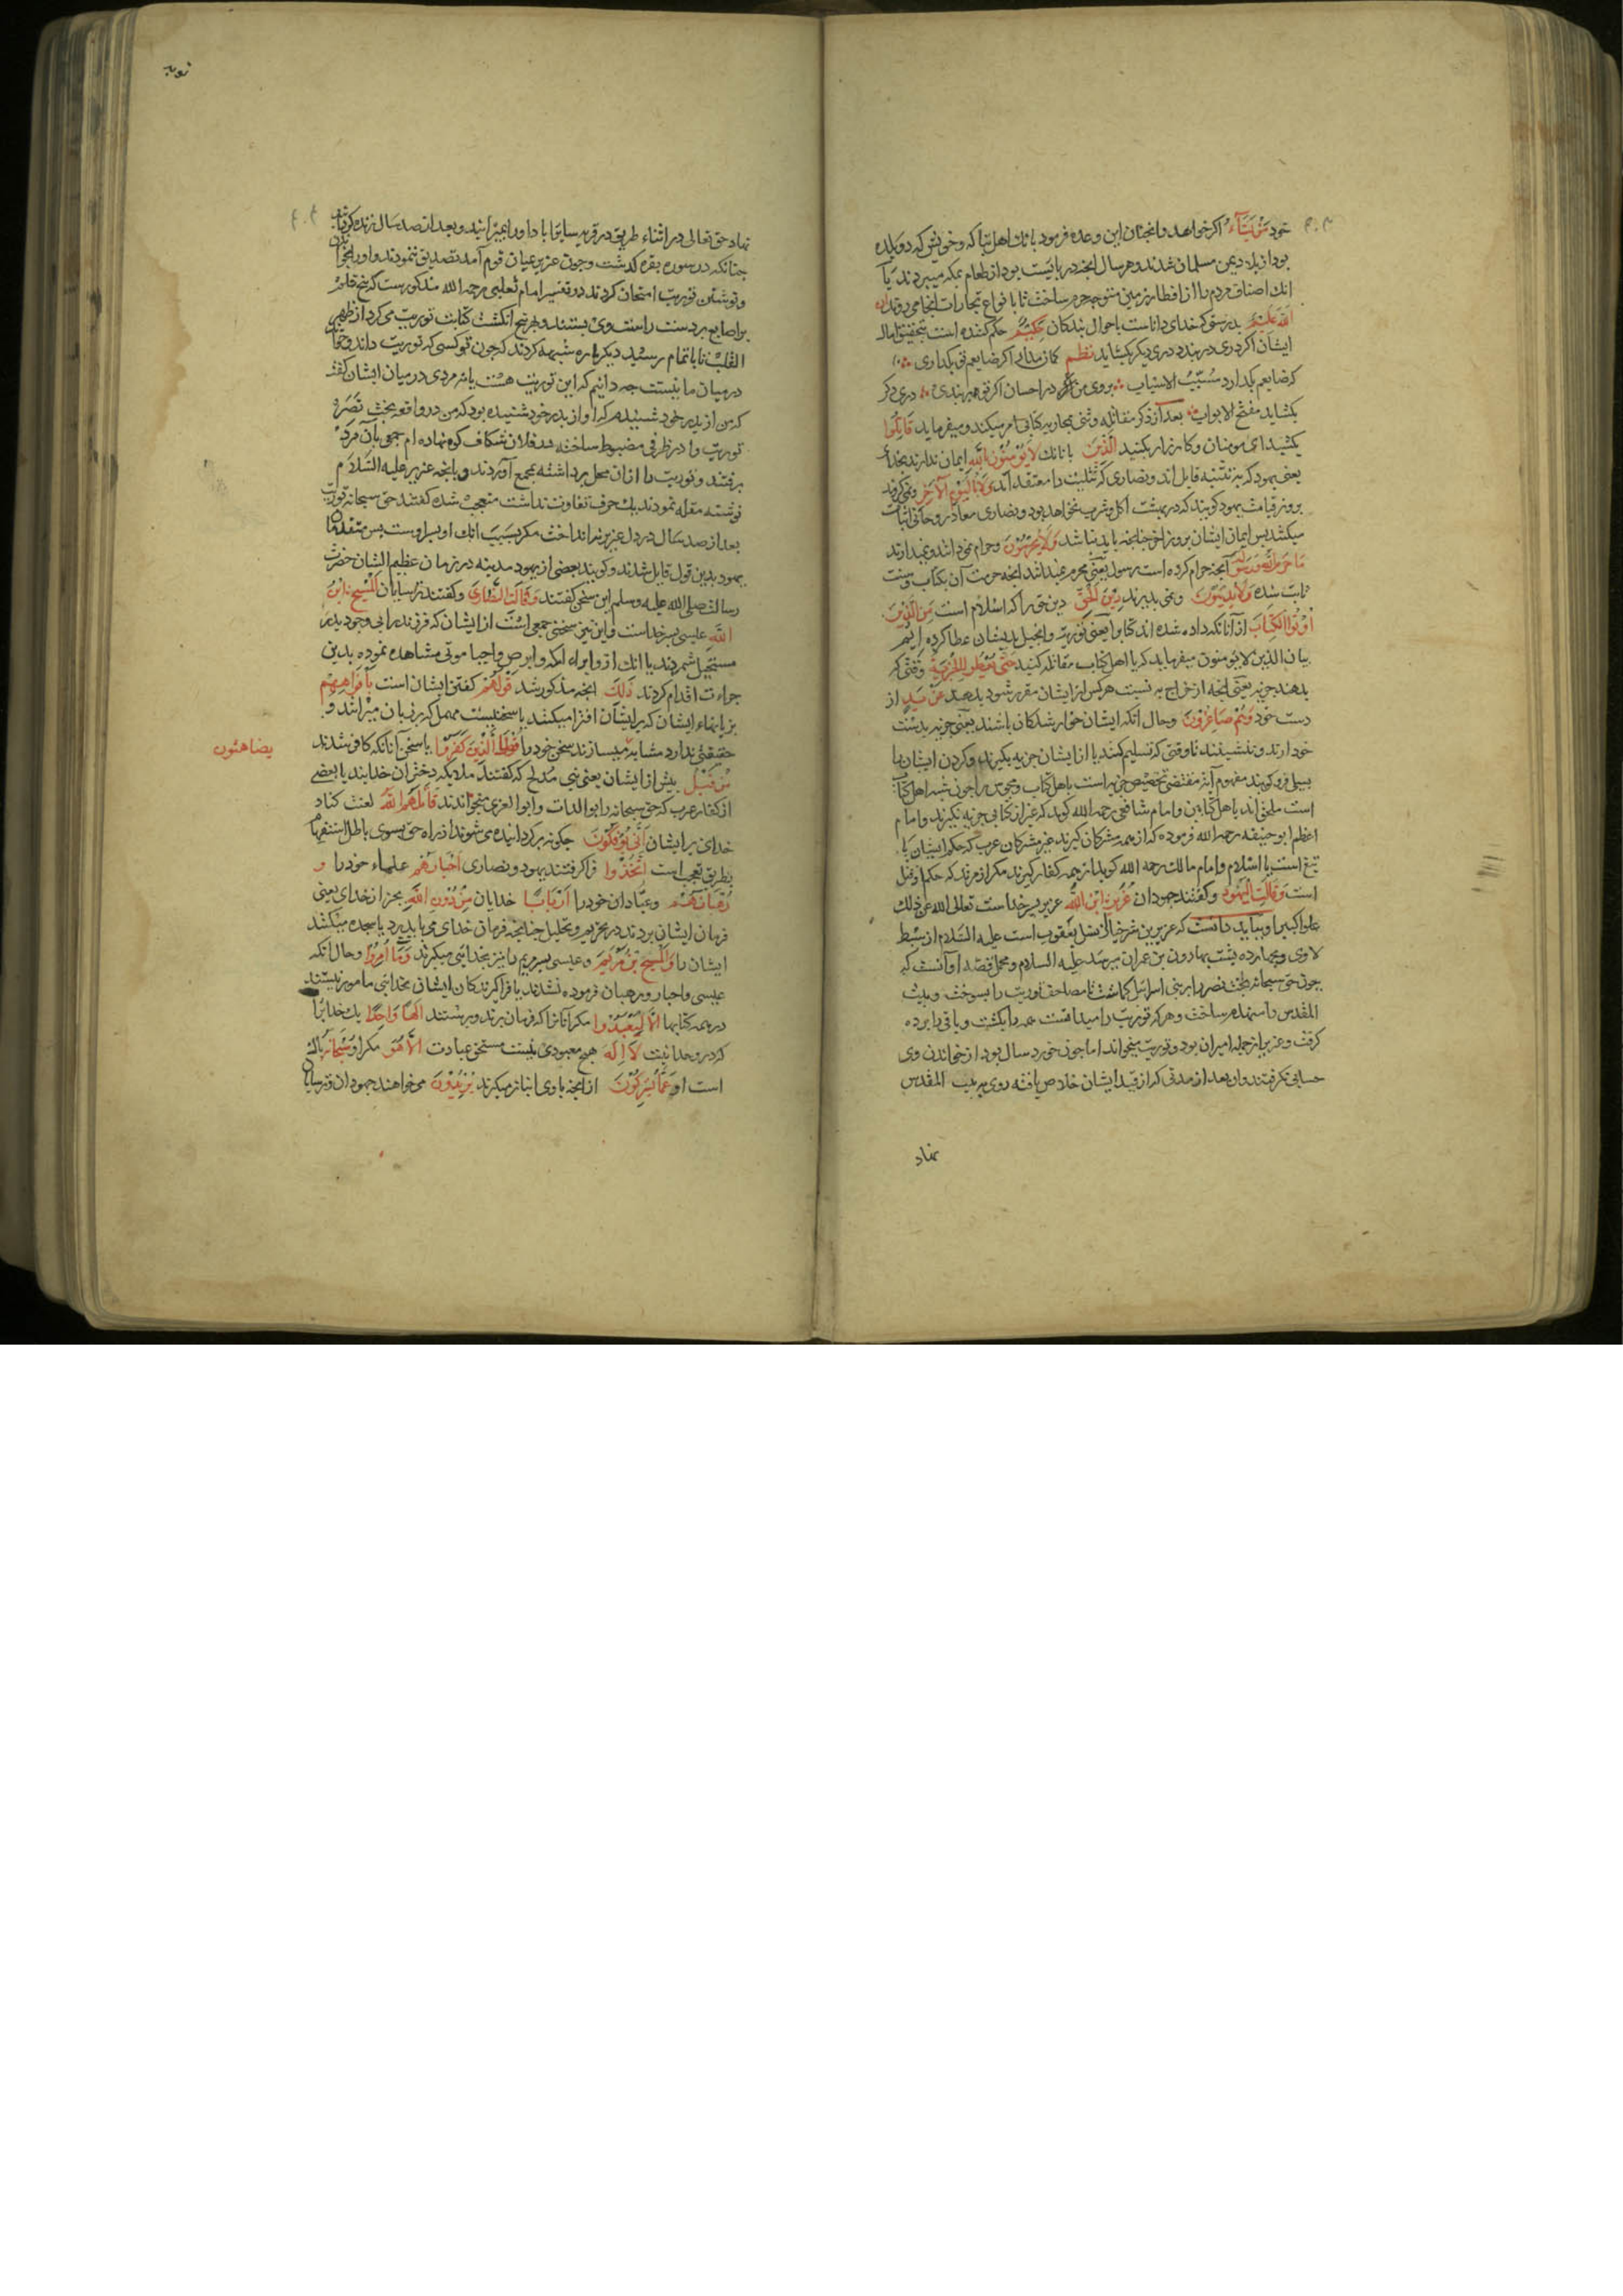 خود ان شاء اگر خواهد وانجنان این وعده فرمود بانك اهل تباله وجرش که دو بلده
بود از بلاد یمن مسلمان شدند وهر سال انجه در بایست بود از طعام بمکه میبردند یا
انك اصناف مردم را از اقطار زمین متوجه حرم ساخت تا با نواع تجارات انجا میروند ان
الله علیم بدرستی که خدای داناست باحوال بندکان حکیم حکم کننده است بتحقیق امال
ایشان اگر دری در بندد دری دیکر بکشاید نظم کمان مدار اکر ضایعم تو بکذاری
که ضایعم بکذارد مسبب الاسباب بروی من در احسان اکر تو در بندی دری دکر
بکشاید مفتح الابواب بعد از ذکر مقاتله وثنی بمحاربه کتابی امر میکند ومیفرماید قاتلوا
بکشید ای مومنان وکارزار بکنید الذین با انانك لا یؤمنون بالله ایمان ندارند بخدای
یعنی یهود که به تثنیه قایل اند ونصاری که تثلیث را معتقد اند ولا بالیوم الآخر ونمی کروند
بروز قیامت یهود کویند که در بهشت اکل وشرب نخواهد بود ونصاری معاد روحانی اثبات
میکنند پس ایمان ایشان بروز آخر جنانجه باید نباشد ولا یحرمون وحرام نمی دانند ونمیدارند
ما حرم الله ورسوله آنجه حرام کرده است رسول یعنی محرم نمیدانند انجه حرمت آن بکتاب وسنت
ثابت شده ولا یدینون ونمی پذیرند دین الحق دین حق را که اسلام است من الذین
اوتوا الکتاب از آنانکه داده شده اند کتاب را یعنی توریة وانجیل بدیشان عطا کرده ایم
بیان الذین لا یومنون میفرماید که با اهل کتاب مقاتله کنید حتی یعطوا الجزیة وقتی که
بدهند جزیه یعنی انجه از خراج به نسبت هرکس از ایشان مقرر شود بدهد عن ید از
دست خود وهم صاغرون وحال آنکه ایشان خوار شدکان باشند یعنی جزیه بدست
خود ارند وننشینند تا وقتی که تسلیم کنند یا از ایشان جزیه بکیرند وکردن ایشان را
بسیلی فرو کوبند مفهوم آیة مقتضی تخصیص جزیه است باهل کتاب ومجوس را جون شبه اهل کتاب
است ملحق اند باهل کتابین وامام شافعی رحمه الله کوید که غیر از کتابی جزیه نکیرند وامام
اعظم ابو حنیفه رحمه الله فرموده که از همه مشرکان کیرند غیر مشرکان عرب که حکم ایشان یا
تیغ است یا اسلام وامام مالك رحمه الله کوید از همه کفار کیرند مکر از مرتد که حکم او قتل
است وقالت الیهود وکفتند جهودان عزیر ابن الله عزیر پسر خداست تعالی الله عن ذلك
علوا کبیرا وبباید دانست که عزیر بن شرخیا از نسل یعقوب است علیه السلام از سبط
لاوی وبجهارده پشت بهارون بن عمران میرسد علیه السلام ومجمل قصه او آنست که
جون حق سبحانه بخت نصر را بر بنی اسرائیل کماشت تا مصاحف توریت را بسوخت وبیت
المقدس را منهدم ساخت وهرکه توریت را میدانست همه را بکشت وباقی را برده
کرفت وعزیر از جمله اسیران بود وتوریت میخواند اما جون خورد سال بود از خواندن وی
حسابی نکرفتند وان بعد از مدتی که از قید ایشان خلاص یافته روی به بیت المقدس
نهاد
نهاد حق تعالی در اثناء طریق در قریه سایراباد او را بمیرانید وبعد از صد سال زنده کردانید
جنانکه در سوره بقره کذشت وجون عزیر بمیان قوم آمد تصدیق ننمودند واورا بخواندن
ونوشتن توریت امتحان کردند در تفسیر امام ثعلبی رحمه الله مذکورست که پنج قلم
بر اصابع دست راست وی بستند وبهر پنج انکشت کتابت توریت می کرد از ظهر
القلب تا باتمام رسید دیکر باره شبهه کردند که جون تو کسی که توریت داند وخواند
در میان ما نیست جه دانیم که این توریت هست یا نه مردی در میان ایشان کفت
که من از پدر خود شنیدم که او از پدر خود شنیده بود که من در واقعه بخت نصره
توریت را در ظرفی مضبوط ساخته در فلان شکاف کوه نهاده ام جمعی بآن مرد
برفتند وتوریت را ازان محل برداشته بمجمع آوردند وبانجه عزیر علیه السلام
نوشته مقابله نمودند یك حرف تفاوت نداشت متعجب شده کفتند حق سبحانه توریت
بعد از صد سال در دل عزیر نینداخت مکر بسبب انك او پسر اوست پس متقدمان
یهود بدین قول قایل شدند وکویند بعضی از یهود مدینه در زمان عظیم الشان حضرت
رسالت صلی الله علیه وسلم این سخن کفتند وقالت النصاری وکفتند ترسایان المسیح ابن
الله عیسی پسر خداست واین نیز سخن جمعی است از ایشان که فرزند را بی وجود پدر
مستحیل شمردند یا انك از وابراء اکمه وابرص واحیا موتی مشاهده نموده بدین
جراءت اقدام کردند ذلك انجه مذکور شد قولهم کفتن ایشان است بافواههم
بزبانهاء ایشان که بر ایشان افترا میکنند یا سخنیست مهمل که بر زبان میرانند و
حقیقتی ندارد مشابه میسازند سخن خود را قول الذین کفروا با سخن آنانکه کافر شدند
یضاهئون
من قبل پیش از ایشان یعنی بنی مدلج که کفتند ملایکه دختران خدایند یا بعضی
از کفار عرب که حق سبحانه را ابوا اللات وابوا العزی میخواندند قاتلهم الله لعنت کناد
خدای بر ایشان انی یؤفکون جکونه برکردانیده می شوند از راه حق بسوی باطل استفهام
بطریق تعجب است اتخذوا فرا کرفتند یهود ونصاری احبارهم علماء خود را و
رهبانهم وعبادان خود را اربابا خدایان من دون الله بجز از خدای یعنی
فرمان ایشان بردند در تحریم وتحلیل جنانجه فرمان خدای می باید برد یا سجده میکنند
ایشان را والمسیح بن مریم وعیسی پسر مریم را نیز بخدایی میکیرند وما امروا وحال انکه
عیسی واحبار ورهبان فرموده نشدند یا فرا کیرندکان ایشان بخدایی مامور نیستند
در همه کتابها الا لیعبدوا مکر آنانرا که فرمان برند وپرستند الها واحدا یك خدایرا
که در وحدانیت لا اله هیج معبودی نیست مستحق عبادت الا هو مکر او سبحانه پاکی
است او عما یشرکون از انجه باوی انباز میکیرند یریدون می خواهند جهودان وترسایان